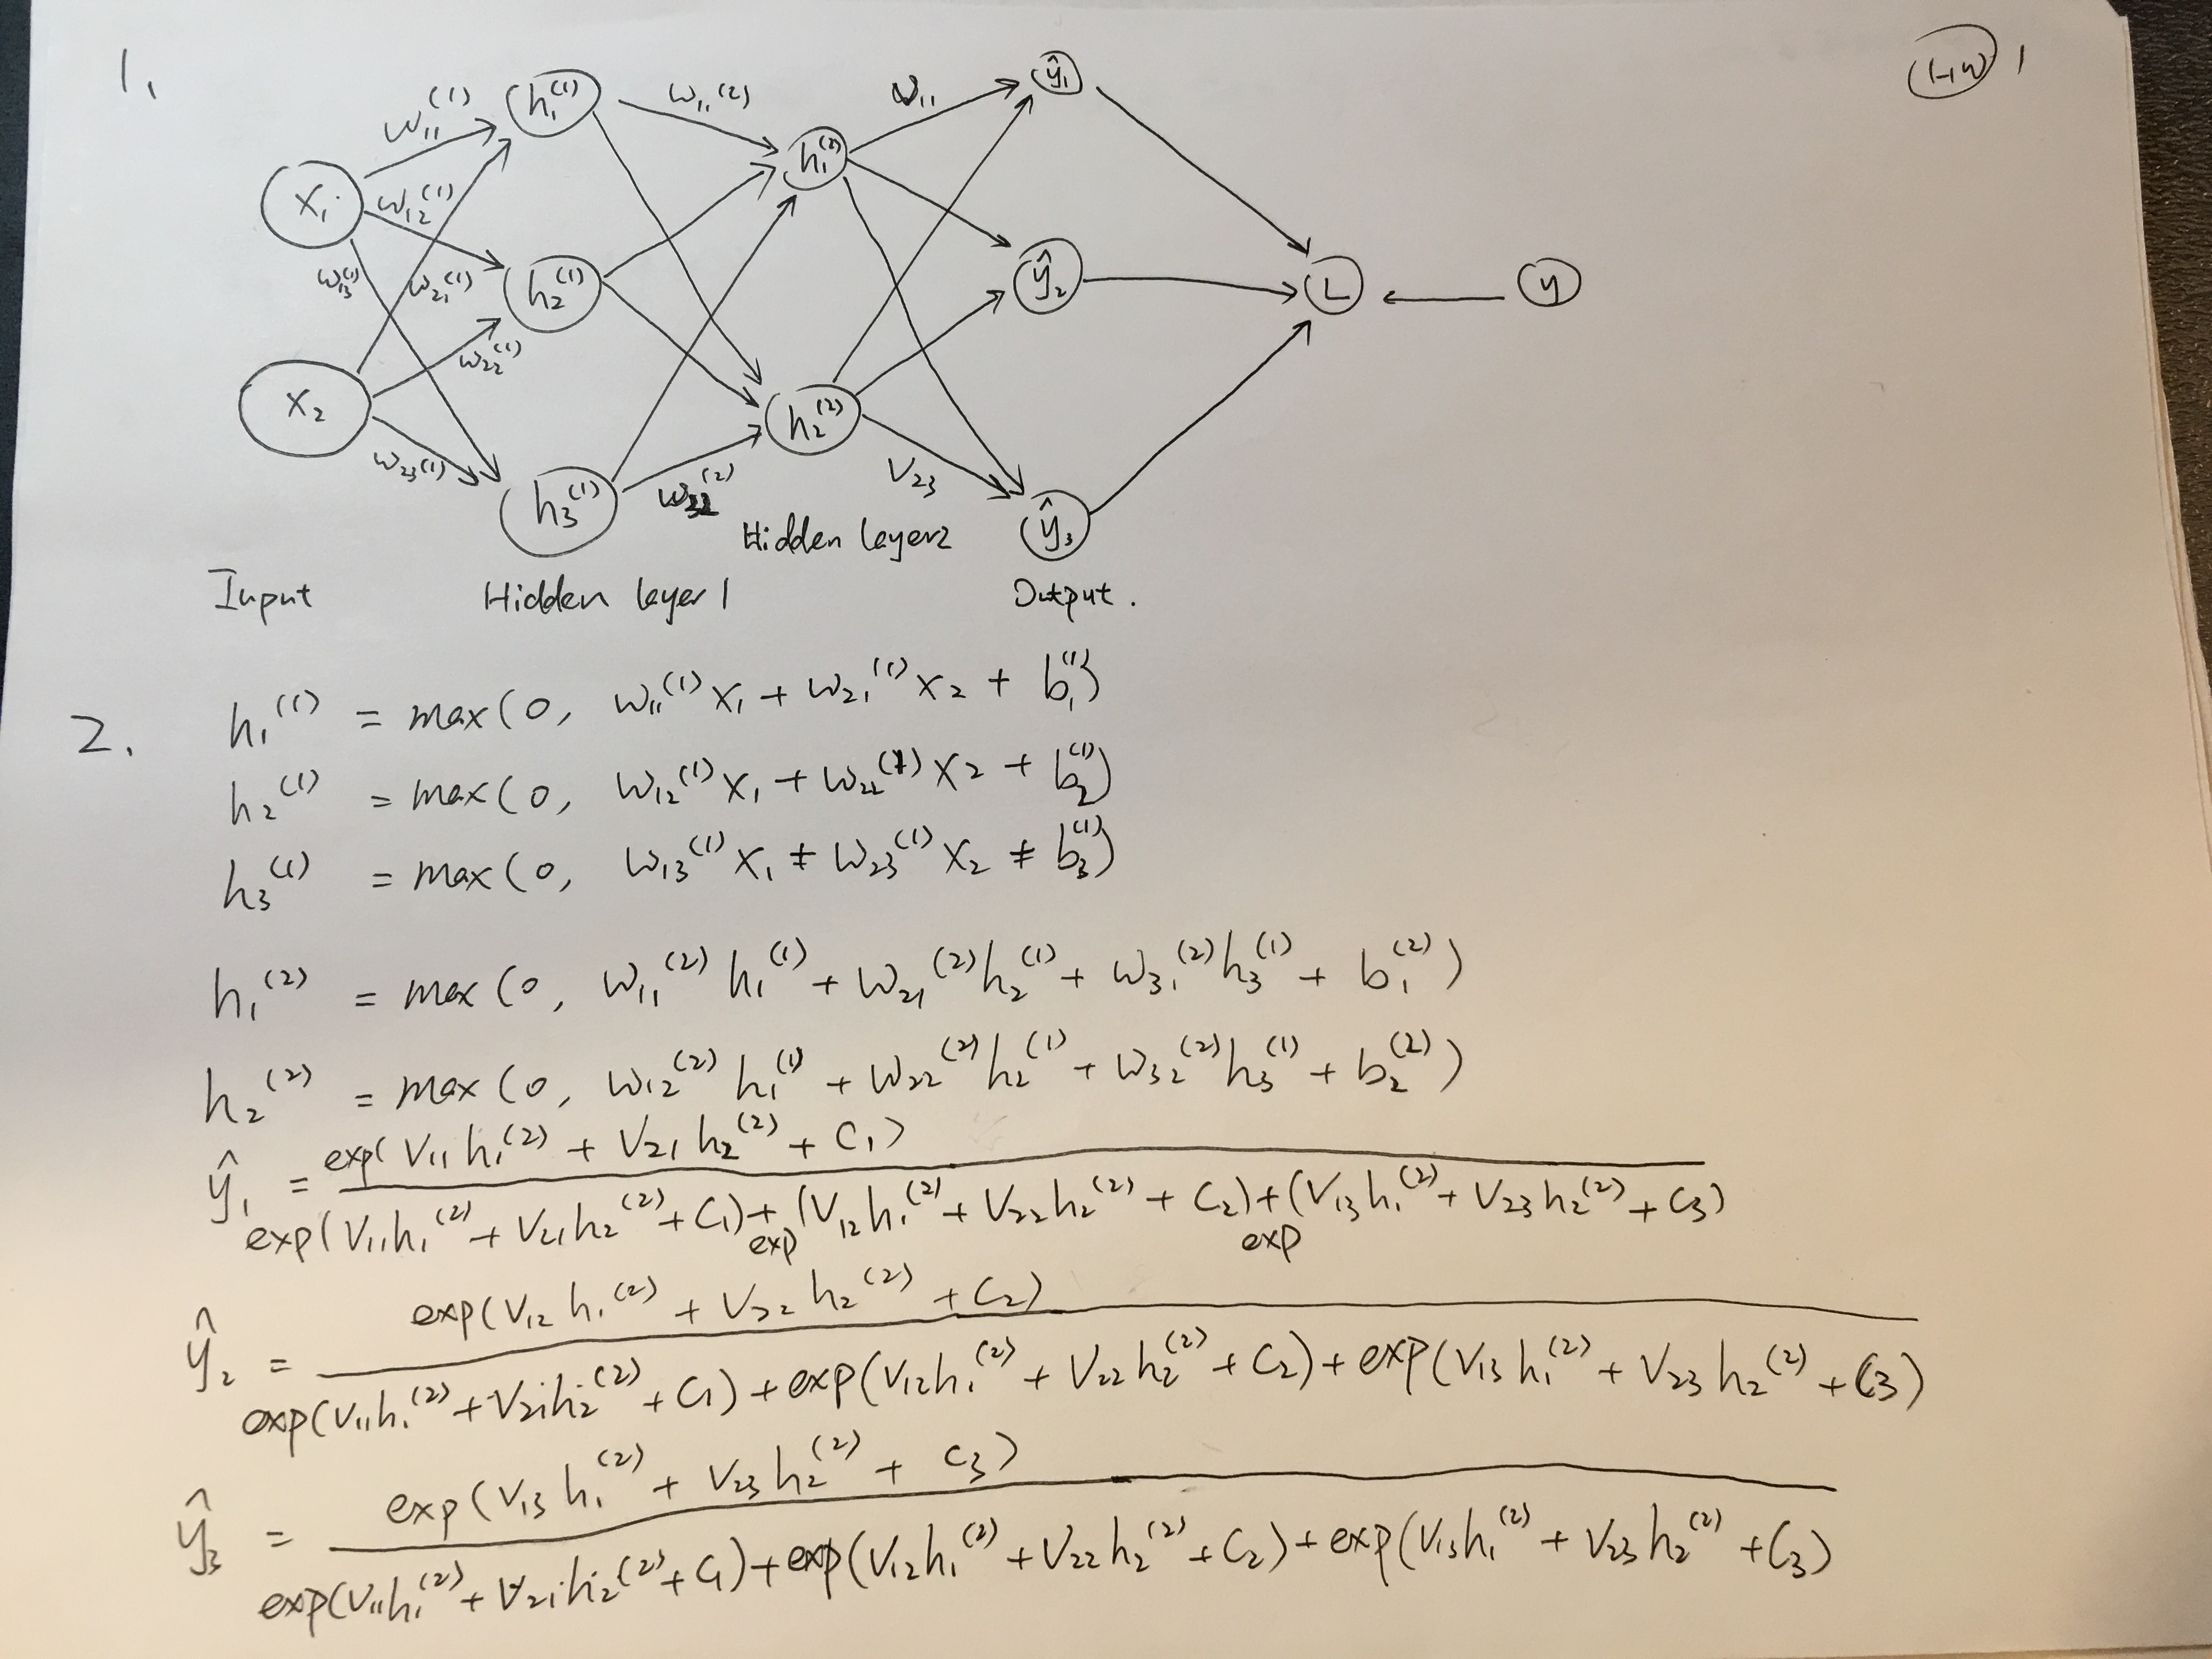 1.
HW 1
x₁
x₂
w₁₁⁽¹⁾
w₁₂⁽¹⁾
w₁₃⁽¹⁾
w₂₁⁽¹⁾
w₂₂⁽¹⁾
w₂₃⁽¹⁾
h₁⁽¹⁾
h₂⁽¹⁾
h₃⁽¹⁾
w₁₁⁽²⁾
w₃₂⁽²⁾
h₁⁽²⁾
h₂⁽²⁾
V₂₃
ŷ₁
ŷ₂
ŷ₃
L
y
Hidden layer2
Input
Hidden layer 1
Output.
2.
h₁⁽¹⁾ = max(0, w₁₁⁽¹⁾x₁ + w₂₁⁽¹⁾x₂ + b₁⁽¹⁾)
h₂⁽¹⁾ = max(0, w₁₂⁽¹⁾x₁ + w₂₂⁽¹⁾x₂ + b₂⁽¹⁾)
h₃⁽¹⁾ = max(0, w₁₃⁽¹⁾x₁ + w₂₃⁽¹⁾x₂ + b₃⁽¹⁾)
h₁⁽²⁾ = max(0, w₁₁⁽²⁾h₁⁽¹⁾ + w₂₁⁽²⁾h₂⁽¹⁾ + w₃₁⁽²⁾h₃⁽¹⁾ + b₁⁽²⁾)
h₂⁽²⁾ = max(0, w₁₂⁽²⁾h₁⁽¹⁾ + w₂₂⁽²⁾h₂⁽¹⁾ + w₃₂⁽²⁾h₃⁽¹⁾ + b₂⁽²⁾)
exp(V₁₁h₁⁽²⁾ + V₂₁h₂⁽²⁾ + C₁)
ŷ₁ =
exp(V₁₁h₁⁽²⁾ + V₂₁h₂⁽²⁾ + C₁) + exp(V₁₂h₁⁽²⁾ + V₂₂h₂⁽²⁾ + C₂) + exp(V₁₃h₁⁽²⁾ + V₂₃h₂⁽²⁾ + C₃)
exp(V₁₂h₁⁽²⁾ + V₂₂h₂⁽²⁾ + C₂)
ŷ₂ =
exp(V₁₁h₁⁽²⁾ + V₂₁h₂⁽²⁾ + C₁) + exp(V₁₂h₁⁽²⁾ + V₂₂h₂⁽²⁾ + C₂) + exp(V₁₃h₁⁽²⁾ + V₂₃h₂⁽²⁾ + C₃)
exp(V₁₃h₁⁽²⁾ + V₂₃h₂⁽²⁾ + C₃)
ŷ₃ =
exp(V₁₁h₁⁽²⁾ + V₂₁h₂⁽²⁾ + C₁) + exp(V₁₂h₁⁽²⁾ + V₂₂h₂⁽²⁾ + C₂) + exp(V₁₃h₁⁽²⁾ + V₂₃h₂⁽²⁾ + C₃)